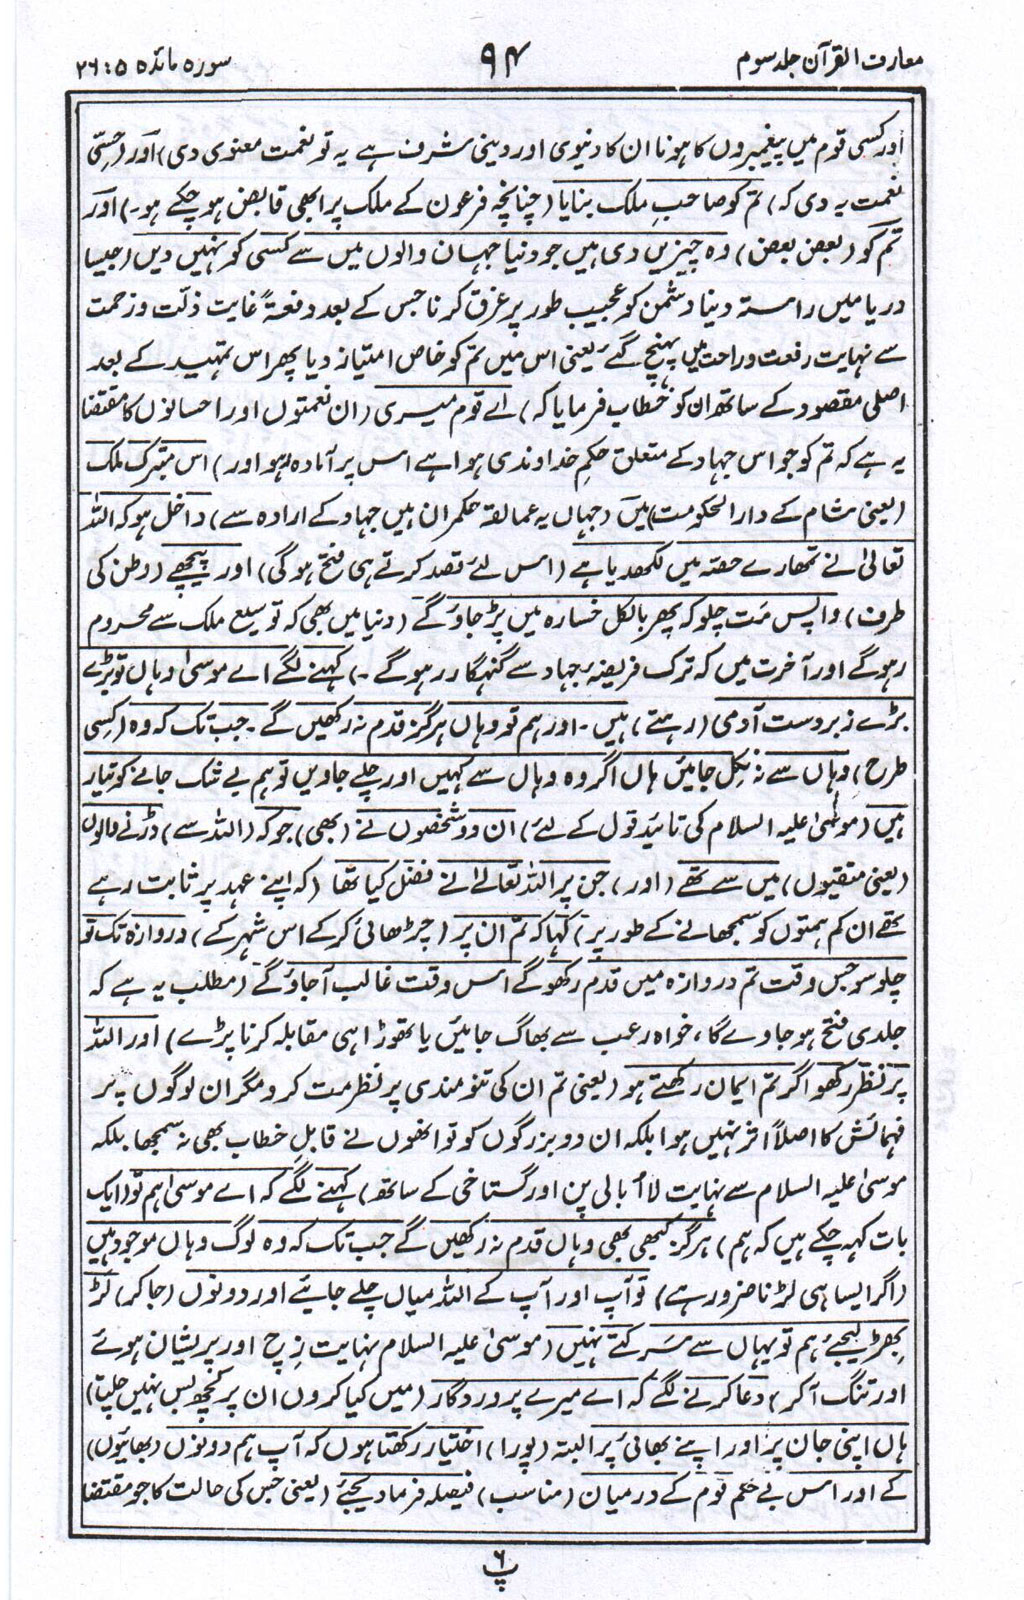 معارف القرآن جلد سوم
۹۴
سورہ مائدہ ۵ : ۲۶
اور کسی قوم میں پیغمبروں کا ہونا ان کا دنیوی اور دینی شرف ہے یہ تو نعمت معنوی دی) اور (حسّی
نعمت یہ دی کہ) تم کو صاحبِ ملک بنایا (چنانچہ فرعون کے ملک پر ابھی قابض ہو چکے ہو۔) اور
تم کو (بعض بعض) وہ چیزیں دی ہیں جو دنیا جہان والوں میں سے کسی کو نہیں دیں (جیسا
دریا میں راستہ دینا دشمن کو عجیب طور پر غرق کرنا جس کے بعد دفعۃً غایت ذلّت و زحمت
سے نہایت رفعت و راحت میں پہنچ گئے، یعنی اس میں تم کو خاص امتیاز دیا پھر اس تمہید کے بعد
اصلی مقصود کے ساتھ ان کو خطاب فرمایا کہ) اے قوم میری (ان نعمتوں اور احسانوں کا مقتضا
یہ ہے کہ تم کو جو اس جہاد کے متعلق حکمِ خداوندی ہوا ہے اس پر آمادہ ہو اور) اس متبرک ملک
(یعنی شام کے دار الحکومت) میں (جہاں یہ عمالقہ حکمران ہیں جہاد کے ارادہ سے) داخل ہو کہ اللہ
تعالیٰ نے تمھارے حصّہ میں لکھدیا ہے (اس لئے قصد کرتے ہی فتح ہوگی) اور پیچھے (وطن کی
طرف) واپس مَت چلو کہ پھر بالکل خسارہ میں پڑ جاؤ گے (دنیا میں بھی کہ توسیع ملک سے محروم
رہو گے اور آخرت میں کہ ترک فریضۂ جہاد سے گنہگار رہو گے۔) کہنے لگے اے موسیٰ وہاں تو بڑے
بڑے زبردست آدمی (رہتے) ہیں۔ اور ہم تو وہاں ہرگز قدم نہ رکھیں گے۔ جب تک کہ وہ (کسی
طرح) وہاں سے نہ نِکل جائیں ہاں اگر وہ وہاں سے کہیں اور چلے جاویں تو ہم بے شک جانے کو تیار
ہیں (موسیٰ علیہ السلام کی تائید قول کے لئے) ان دو شخصوں نے (بھی) جو کہ (اللہ سے) ڈرنے والوں
(یعنی متقیوں) میں سے تھے (اور) جن پر اللہ تعالےٰ نے فضل کیا تھا (کہ اپنے عہد پر ثابت رہے
تھے ان کم ہمتوں کو سمجھانے کے طور پر) کہا کہ تم ان پر (چڑھائی کر کے اس شہر کے) دروازہ تک تو
چلو سو جس وقت تم دروازہ میں قدم رکھو گے اسی وقت غالب آجاؤ گے (مطلب یہ ہے کہ
جلدی فتح ہو جاوے گا، خواہ رعب سے بھاگ جائیں یا تھوڑا ہی مقابلہ کرنا پڑے) اور اللہ
پر نظر رکھو اگر تم ایمان رکھتے ہو (یعنی تم ان کی تنومندی پر نظر مت کرو مگر ان لوگوں پر
فہمائش کا اصلاً اثر نہیں ہوا بلکہ ان دو بزرگوں کو تو انھوں نے قابلِ خطاب بھی نہ سمجھا بلکہ
موسیٰ علیہ السلام سے نہایت لا اُبالی پن اور گستاخی کے ساتھ) کہنے لگے کہ اے موسیٰ ہم تو (ایک
بات کہہ چکے ہیں کہ ہم) ہرگز کبھی بھی وہاں قدم نہ رکھیں گے جب تک کہ وہ لوگ وہاں موجود ہیں
(اگر ایسا ہی لڑنا ضرور ہے) تو آپ اور آپ کے اللہ میاں چلے جائیے اور دونوں (جا کر) لڑ
بھِڑ لیجئے ہم تو یہاں سے سَرکتے نہیں (موسیٰ علیہ السلام نہایت زِچ اور پریشان ہوئے
اور تنگ آکر) دعا کرنے لگے کہ اے میرے پروردگار (میں کیا کروں ان پر کچھ بس نہیں چلتا)
ہاں اپنی جان پر اور اپنے بھائی پر البتہ (پورا) اختیار رکھتا ہوں کہ آپ ہم دونوں (بھائیوں)
کے اور اس بے حکم قوم کے درمیان (مناسب) فیصلہ فرما دیجئے (یعنی جس کی حالت کا جو مقتضا
پ ۶